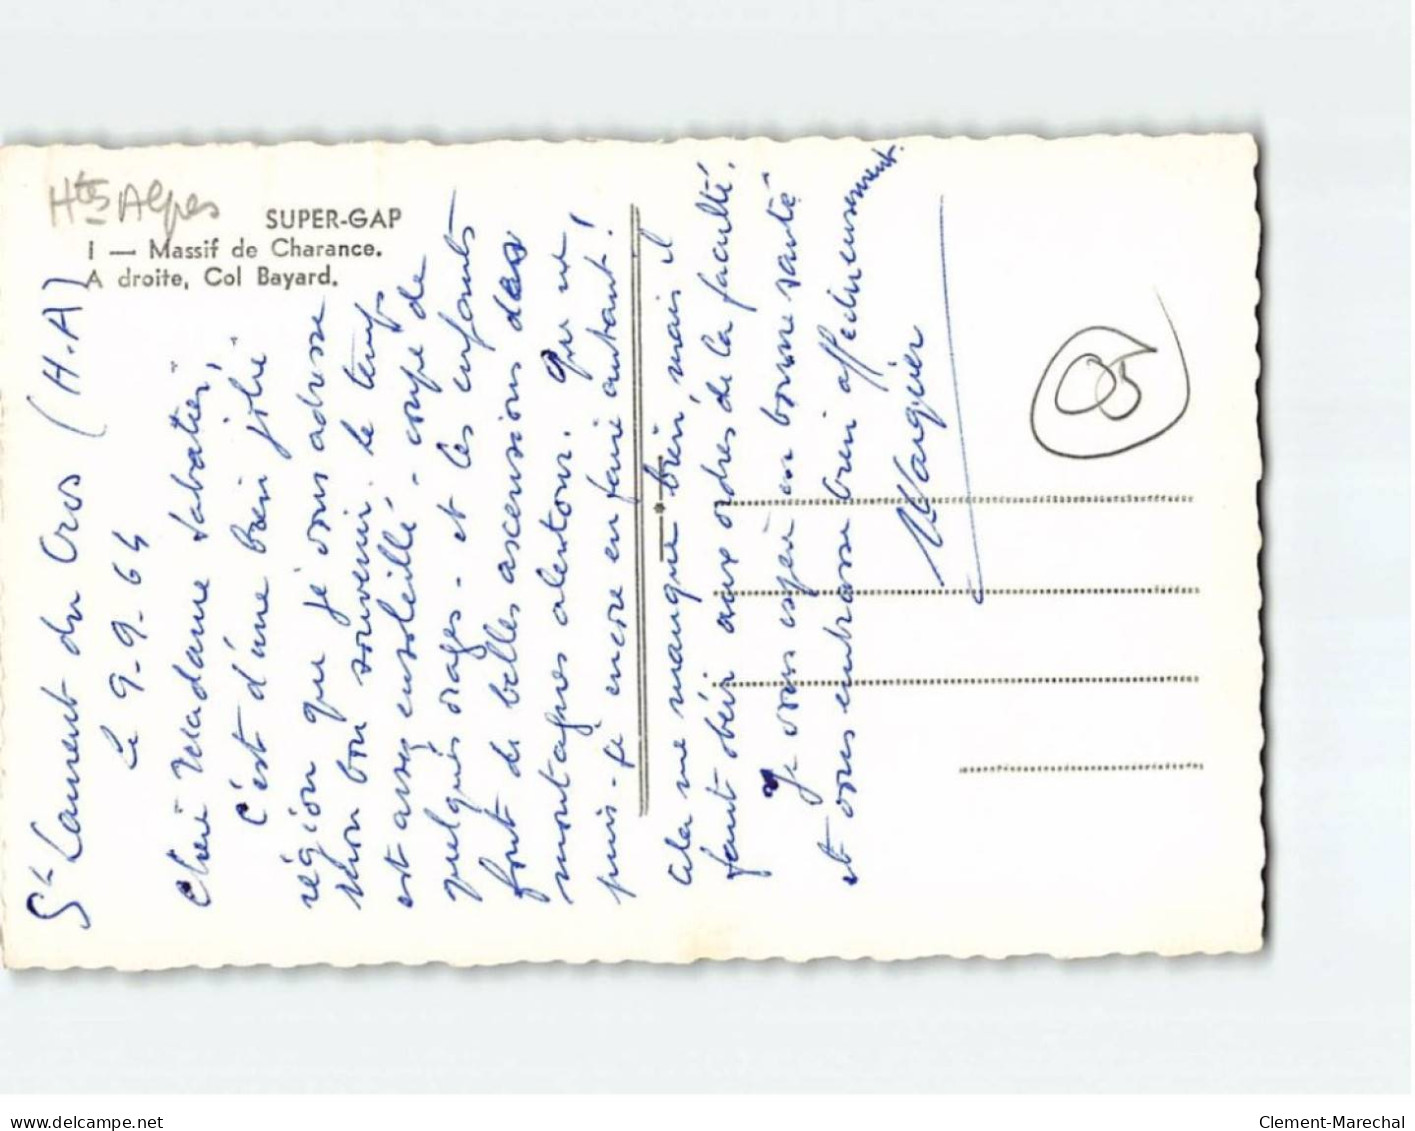 Htes Alpes
SUPER-GAP
I — Massif de Charance.
A droite, Col Bayard.
St Laurent du Cros (H.A)
Le 9-9-64
Chère Madame Sabatier,
C'est d'une bien jolie
région que je vous adresse
mon bon souvenir. Le temps
est assez ensoleillé - coupé de
quelques orages - et les enfants
font de belles ascensions des
montagnes alentour. Que ne
puis-je encore en faire autant !
Cela me manque bien, mais il
faut obéir aux ordres de la faculté.
Je vous espère en bonne santé
et vous embrasse bien affectueusement.
05
www.delcampe.net
Clement-Marechal